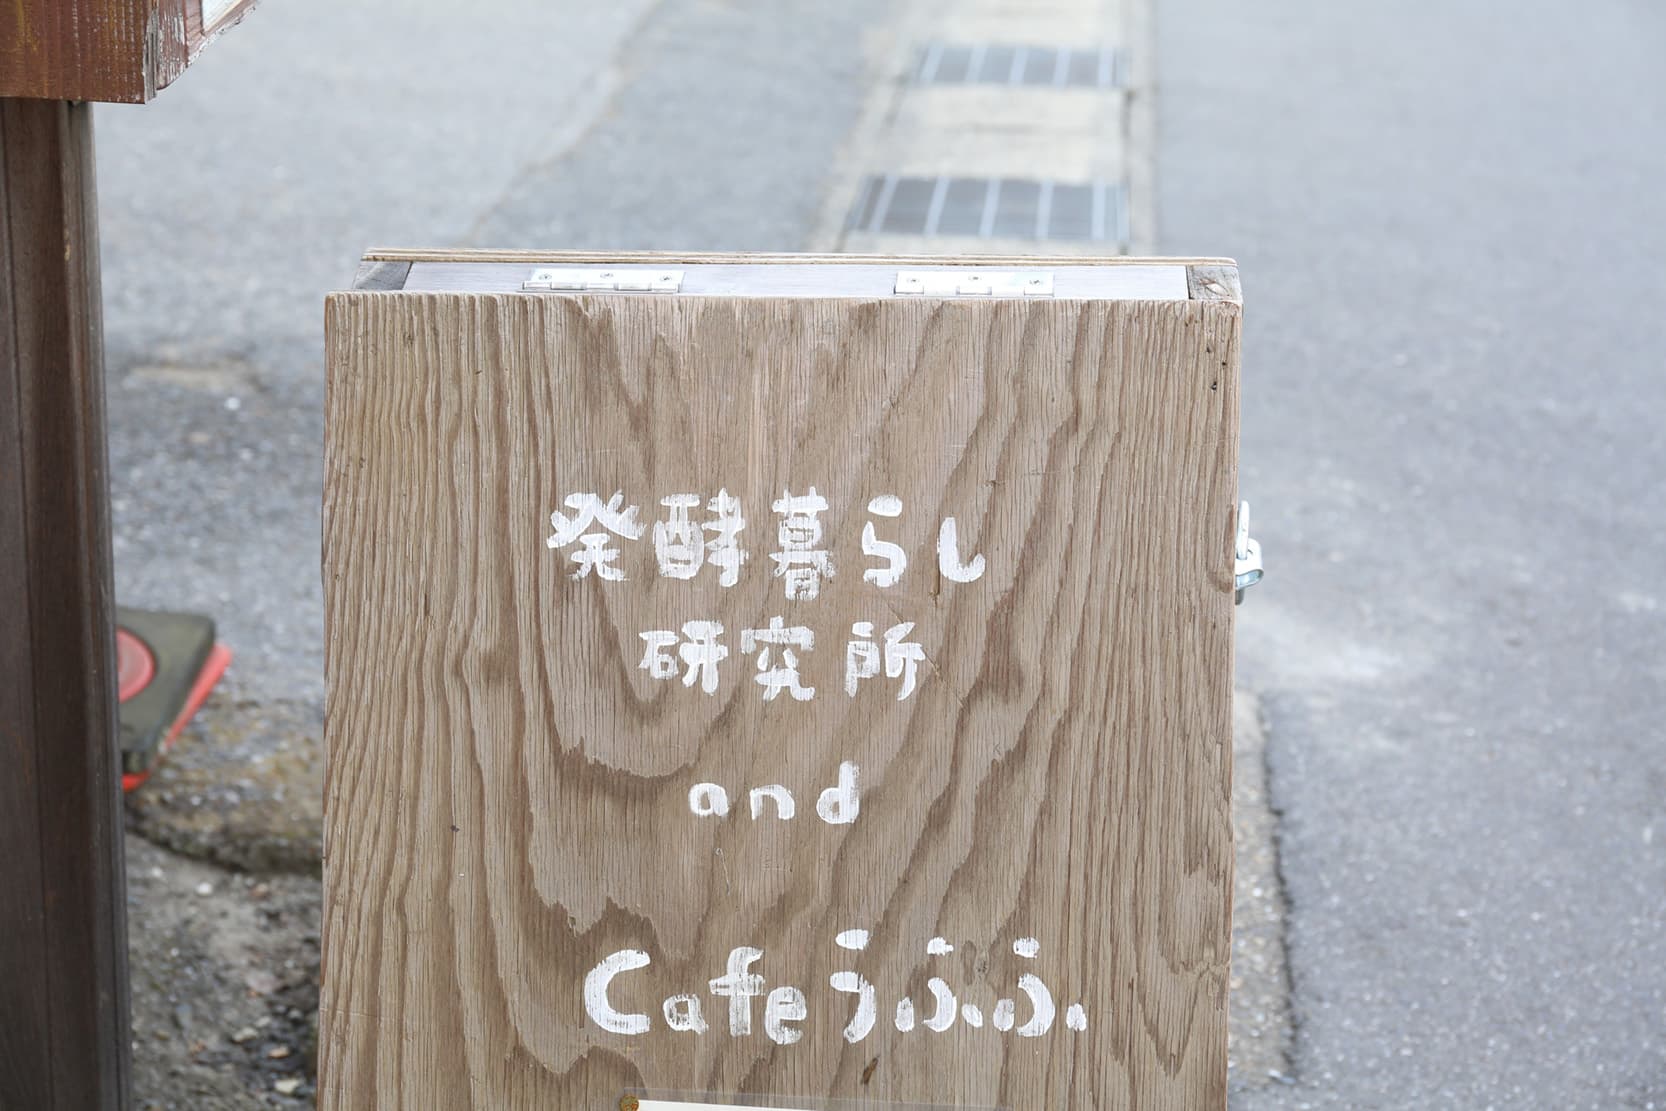 発酵暮らし
研究所
and
Cafeうふふ